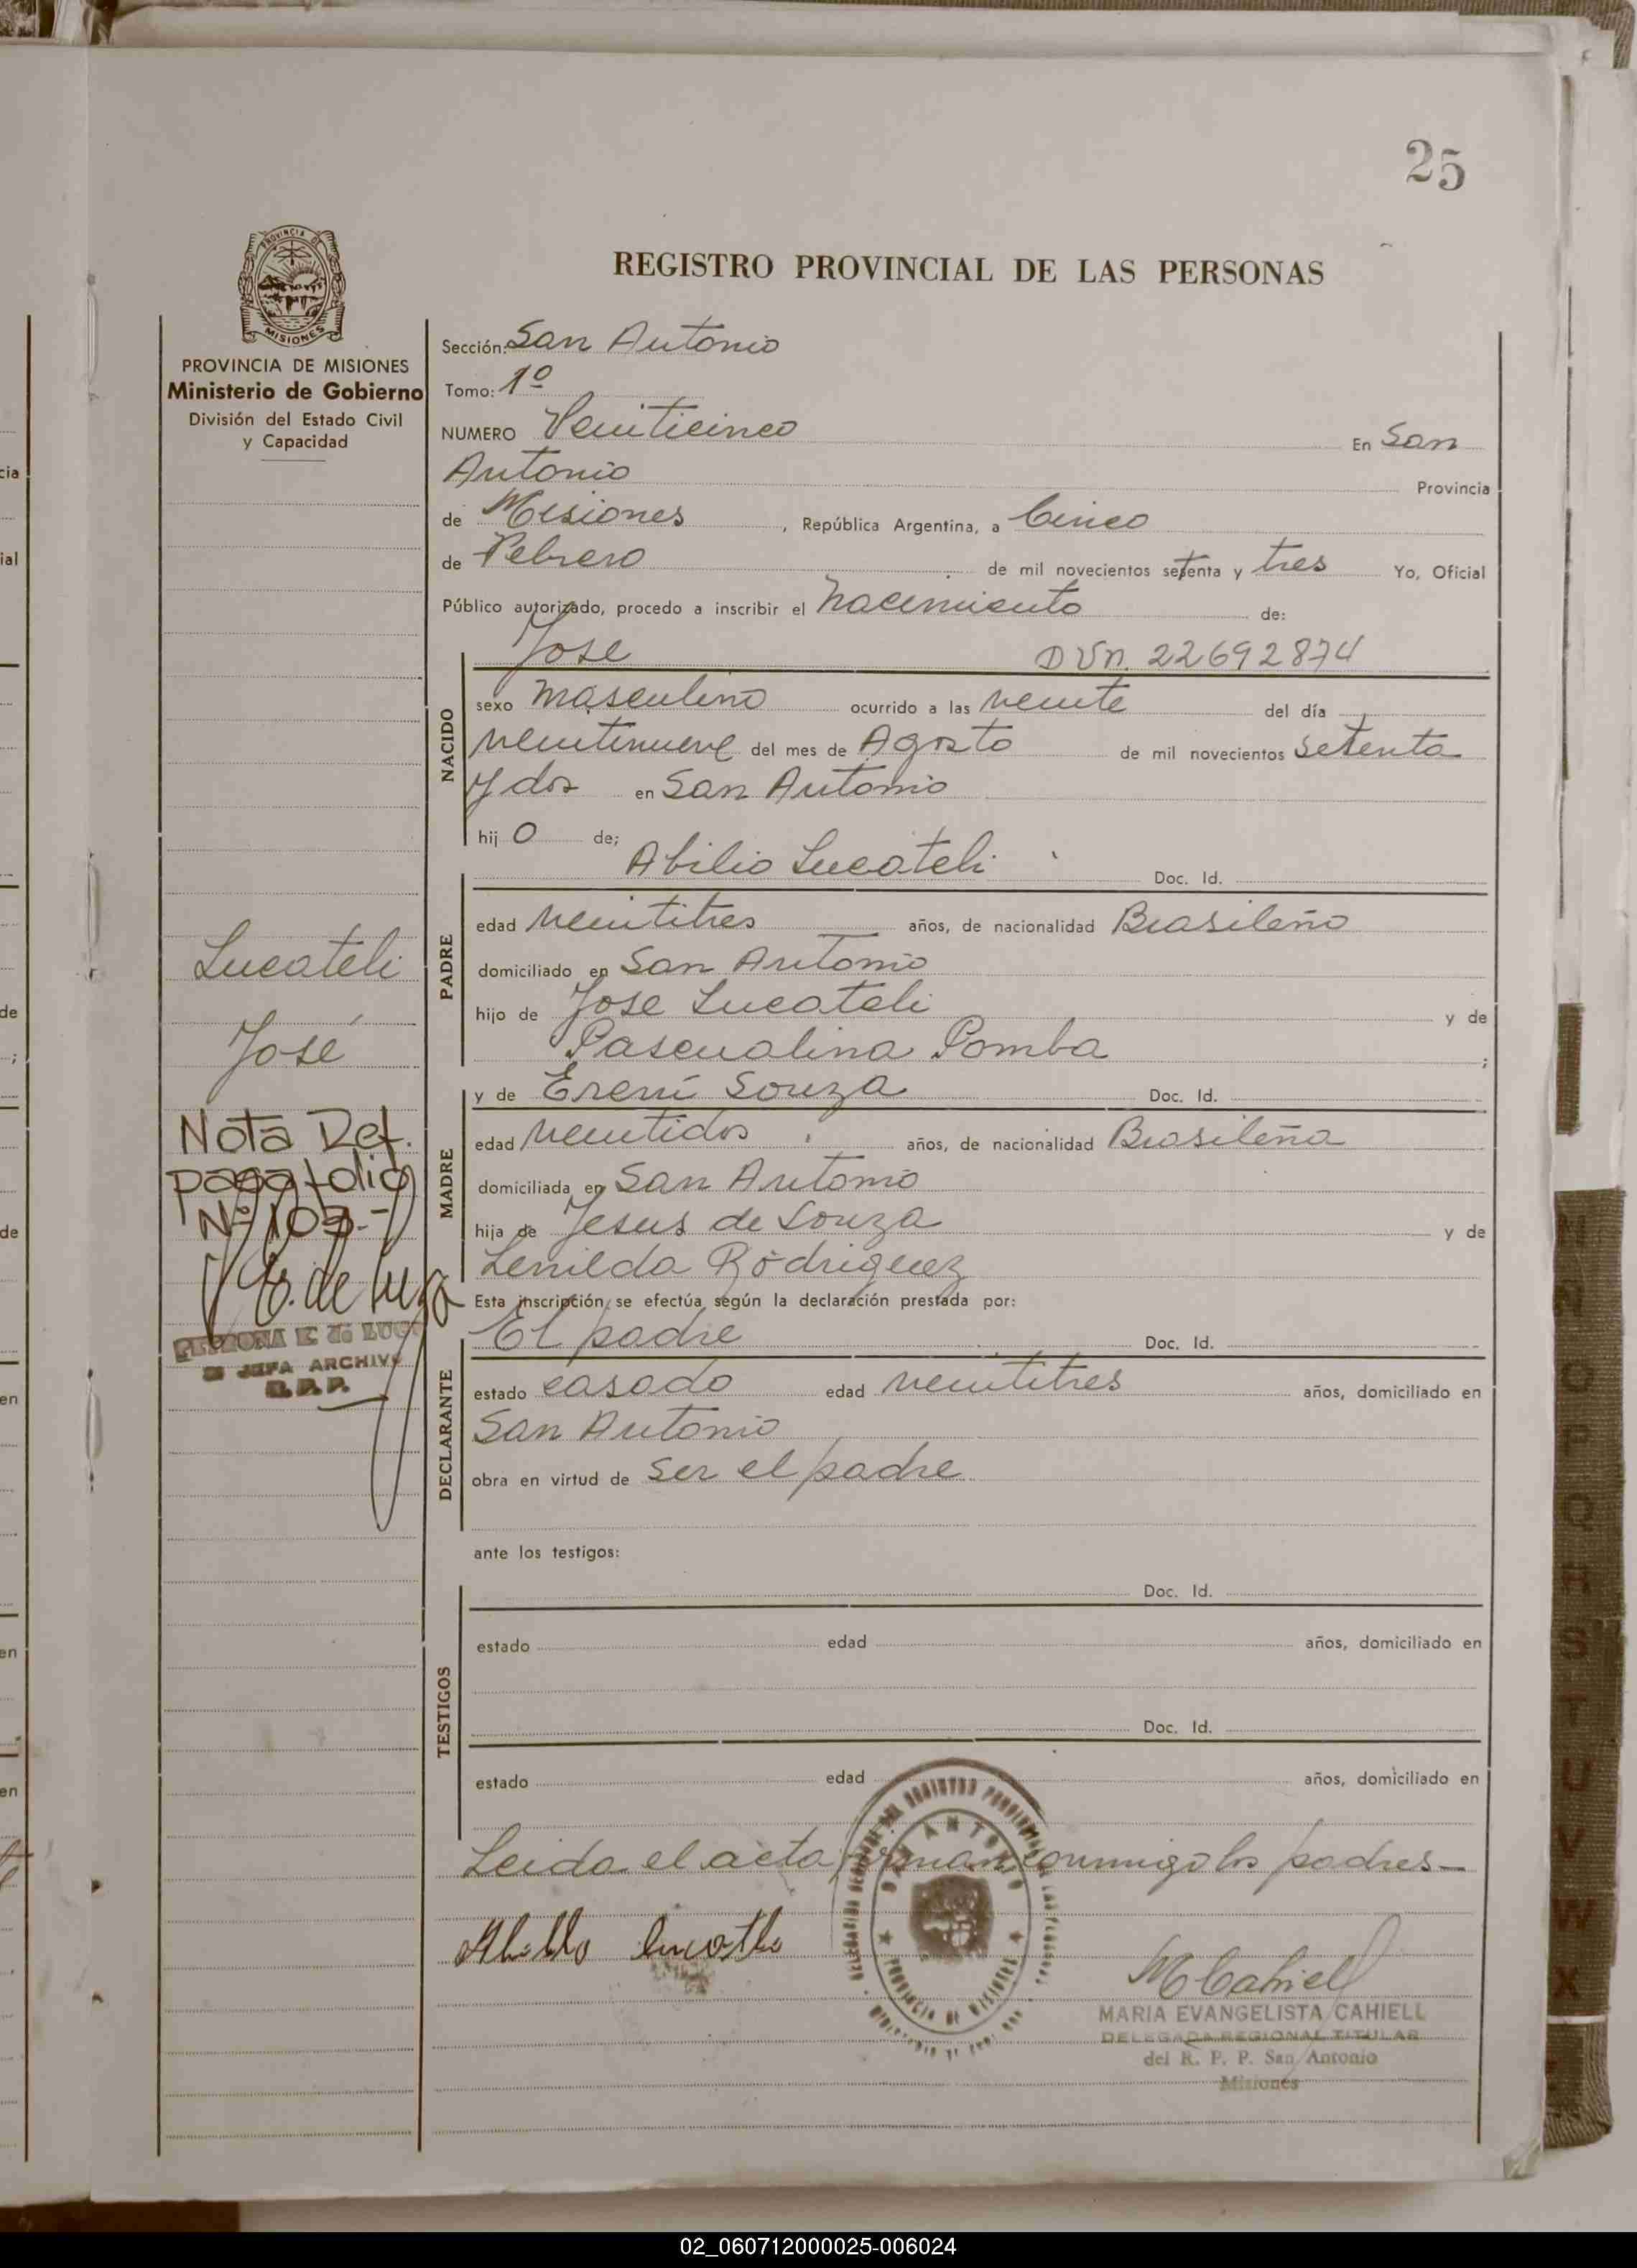 25
PROVINCIA DE
MISIONES
REGISTRO PROVINCIAL DE LAS PERSONAS
PROVINCIA DE MISIONES
Ministerio de Gobierno
División del Estado Civil
y Capacidad
Sección: San Antonio
Tomo: 1º
NUMERO Veinticinco En San
Antonio Provincia
de Misiones, República Argentina, a Cinco
de Febrero de mil novecientos setenta y tres Yo, Oficial
Público autorizado, procedo a inscribir el nacimiento de:
Jose DUn. 22692874
NACIDO
sexo masculino ocurrido a las veinte del día
veintinueve del mes de Agosto de mil novecientos setenta
y dos en San Antonio
hijo de;
Abilio Lucateli Doc. Id.
PADRE
edad veintitres años, de nacionalidad Brasileño
domiciliado en San Antonio
hijo de Jose Lucateli y de
Pascualina Pomba ;
y de Erení Souza Doc. Id.
MADRE
edad veintidos años, de nacionalidad Brasileña
domiciliada en San Antonio
hija de Jesus de Souza y de
Lenilda Rodriguez
Esta inscripción se efectúa según la declaración prestada por:
El padre Doc. Id.
DECLARANTE
estado casado edad veintitres años, domiciliado en
San Antonio
obra en virtud de ser el padre
ante los testigos:
Doc. Id.
TESTIGOS
estado edad años, domiciliado en
Doc. Id.
estado edad años, domiciliado en
Leida el acta firman conmigo los padres
Lucateli
José
Nota Ref.
pasa folio
Nº 103.-
JEFA ARCHIVO
R.P.P.
SAN ANTONIO
PROVINCIA DE MISIONES
MCahiell
MARIA EVANGELISTA CAHIELL
DELEGADA REGIONAL TITULAR
del R. P. P. San Antonio
Misiones
02_060712000025-006024